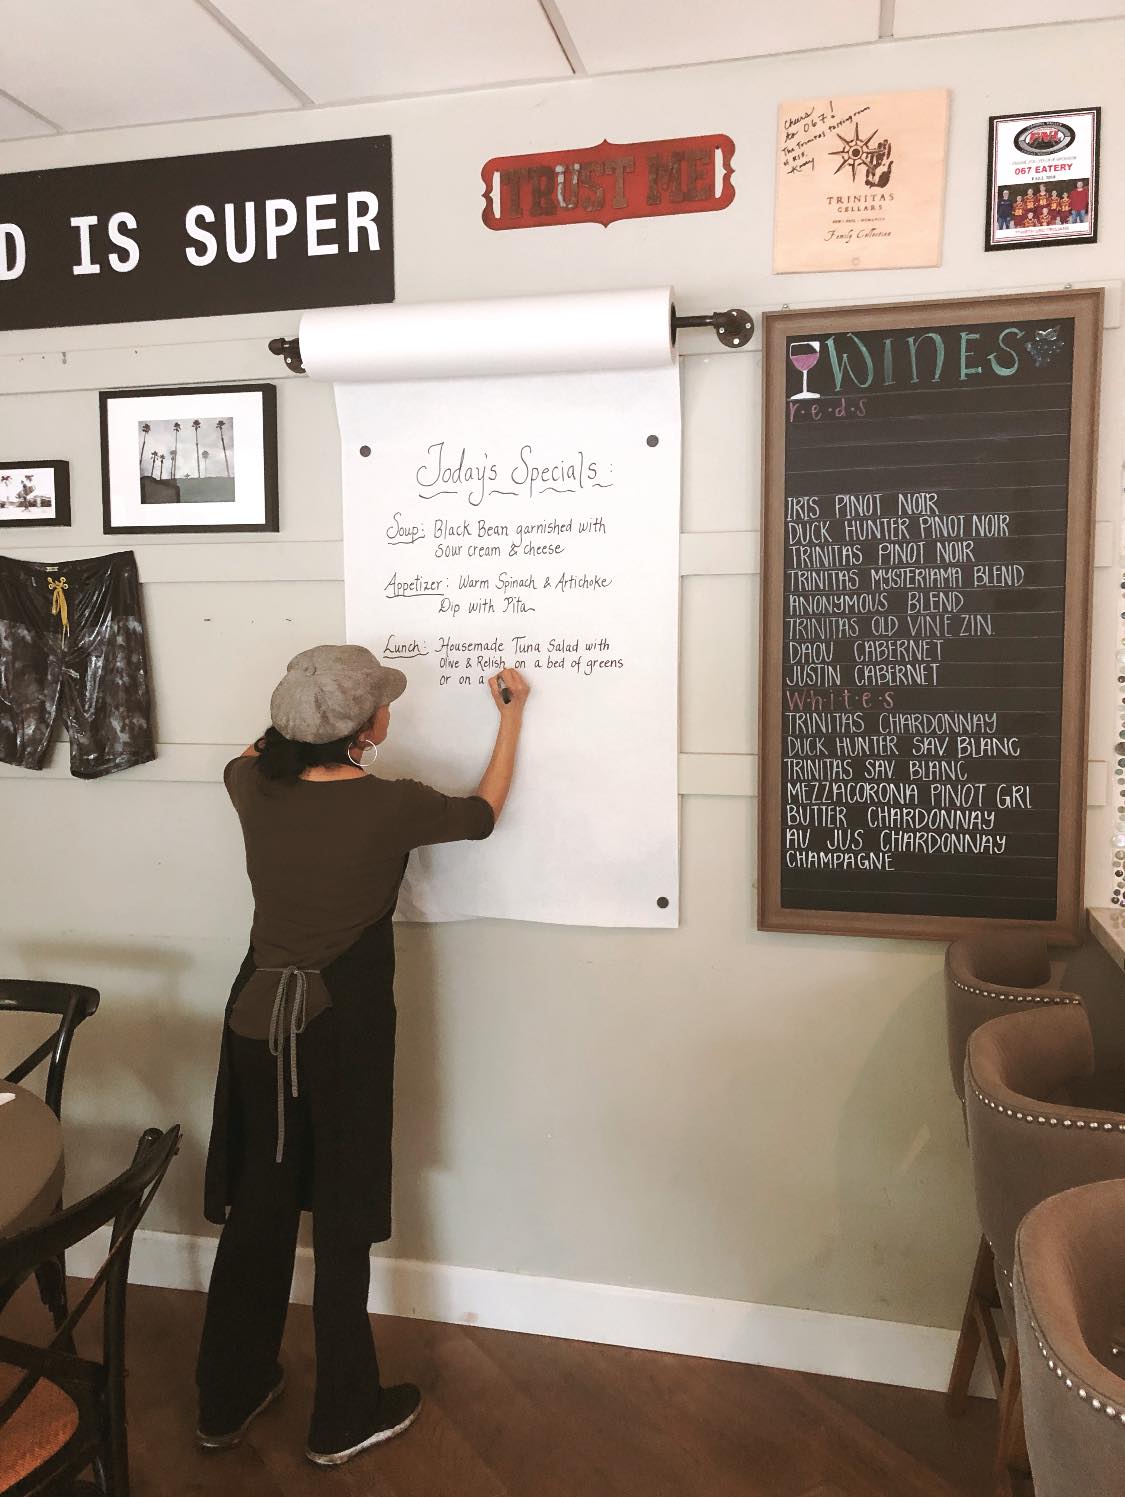 D IS SUPER
TRUST ME
Cheers
to 067!
The Trinitas Tasting room
TRINITAS
CELLARS
Family Collection
067 EATERY
Today's Specials:
Soup: Black Bean garnished with
sour cream & cheese
Appetizer: Warm Spinach & Artichoke
Dip with Pita
Lunch: Housemade Tuna Salad with
Olive & Relish on a bed of greens
or on a
WINES
r·e·d·s
IRIS PINOT NOIR
DUCK HUNTER PINOT NOIR
TRINITAS PINOT NOIR
TRINITAS MYSTERIAMA BLEND
ANONYMOUS BLEND
TRINITAS OLD VINE ZIN.
DAOU CABERNET
JUSTIN CABERNET
W·h·i·t·e·s
TRINITAS CHARDONNAY
DUCK HUNTER SAV. BLANC
TRINITAS SAV. BLANC
MEZZACORONA PINOT GRI
BUTTER CHARDONNAY
AU JUS CHARDONNAY
CHAMPAGNE